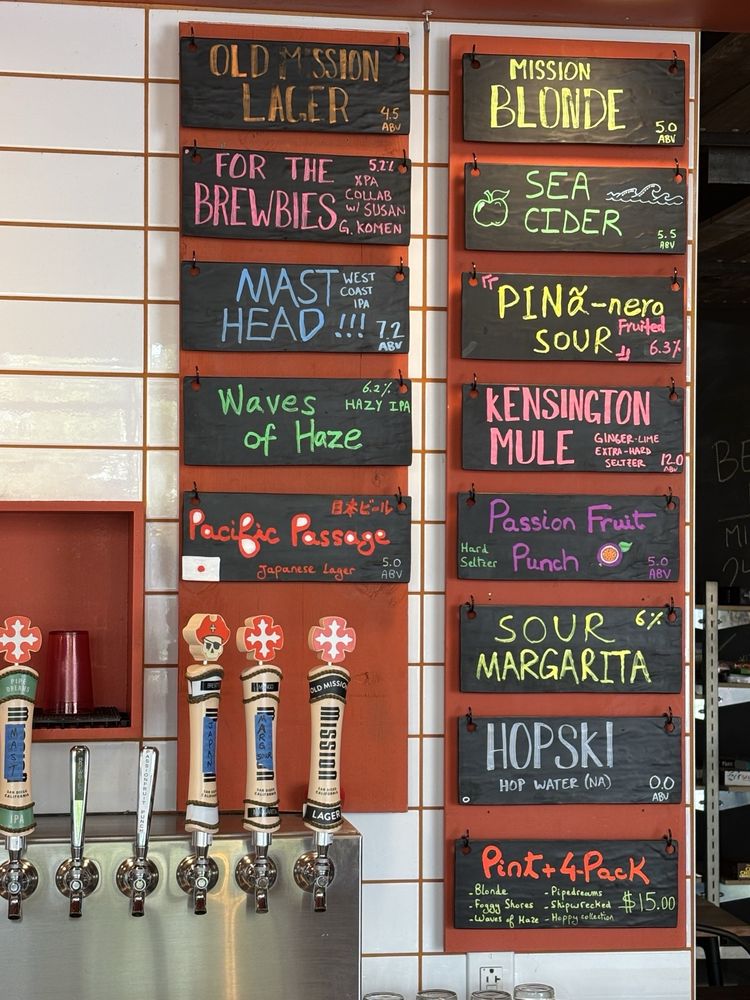 OLD MISSION
LAGER
4.5
ABV
FOR THE
BREWBIES
5.2%
XPA
COLLAB
W/ SUSAN
G. KOMEN
MAST
HEAD !!!
WEST
COAST
IPA
7.2
ABV
Waves
of Haze
6.2%
HAZY IPA
日本ビール
Pacific Passage
Japanese Lager
5.0
ABV
MISSION
BLONDE
5.0
ABV
SEA
CIDER
5.5
ABV
PINã-nero
SOUR
Fruited
6.3%
KENSINGTON
MULE
GINGER-LIME
EXTRA-HARD
SELTZER
12.0
ABV
Passion Fruit
Punch
Hard
Seltzer
5.0
ABV
SOUR
MARGARITA
6%
HOPSKI
HOP WATER (NA)
0.0
ABV
Pint+4-Pack
-Blonde
-Foggy Shores
-Waves of Haze
-Pipedreams
-Shipwrecked
-Hoppy collection
$15.00
PIPE
DREAMS
MAST
SAN DIEGO
CALIFORNIA
IPA
PASSIONFRUIT PUNCH
JAPAN
SAN DIEGO
CALIFORNIA
MARG SOUR
SAN DIEGO
CALIFORNIA
OLD MISSION
MISSION
SAN DIEGO
CALIFORNIA
LAGER
BE
MI